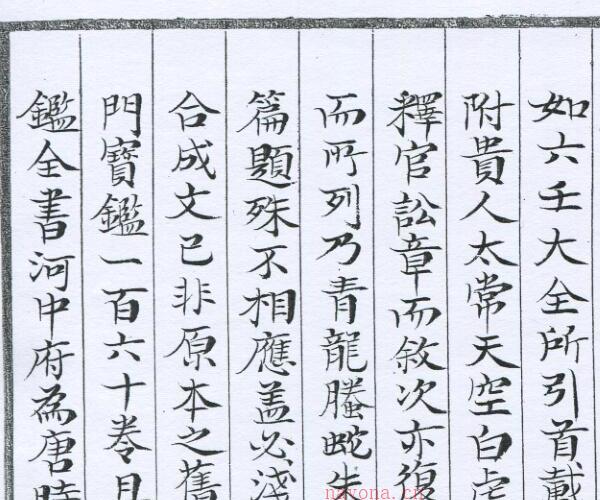 如六壬大全所引首載
附貴人太常天空白虎
釋官訟章而敘次亦復
而所列乃青龍螣蛇朱
篇題殊不相應蓋必淺
合成文已非原本之舊
門寶鑑一百六十卷見
鑑全書河中府為唐時
nayona.cn